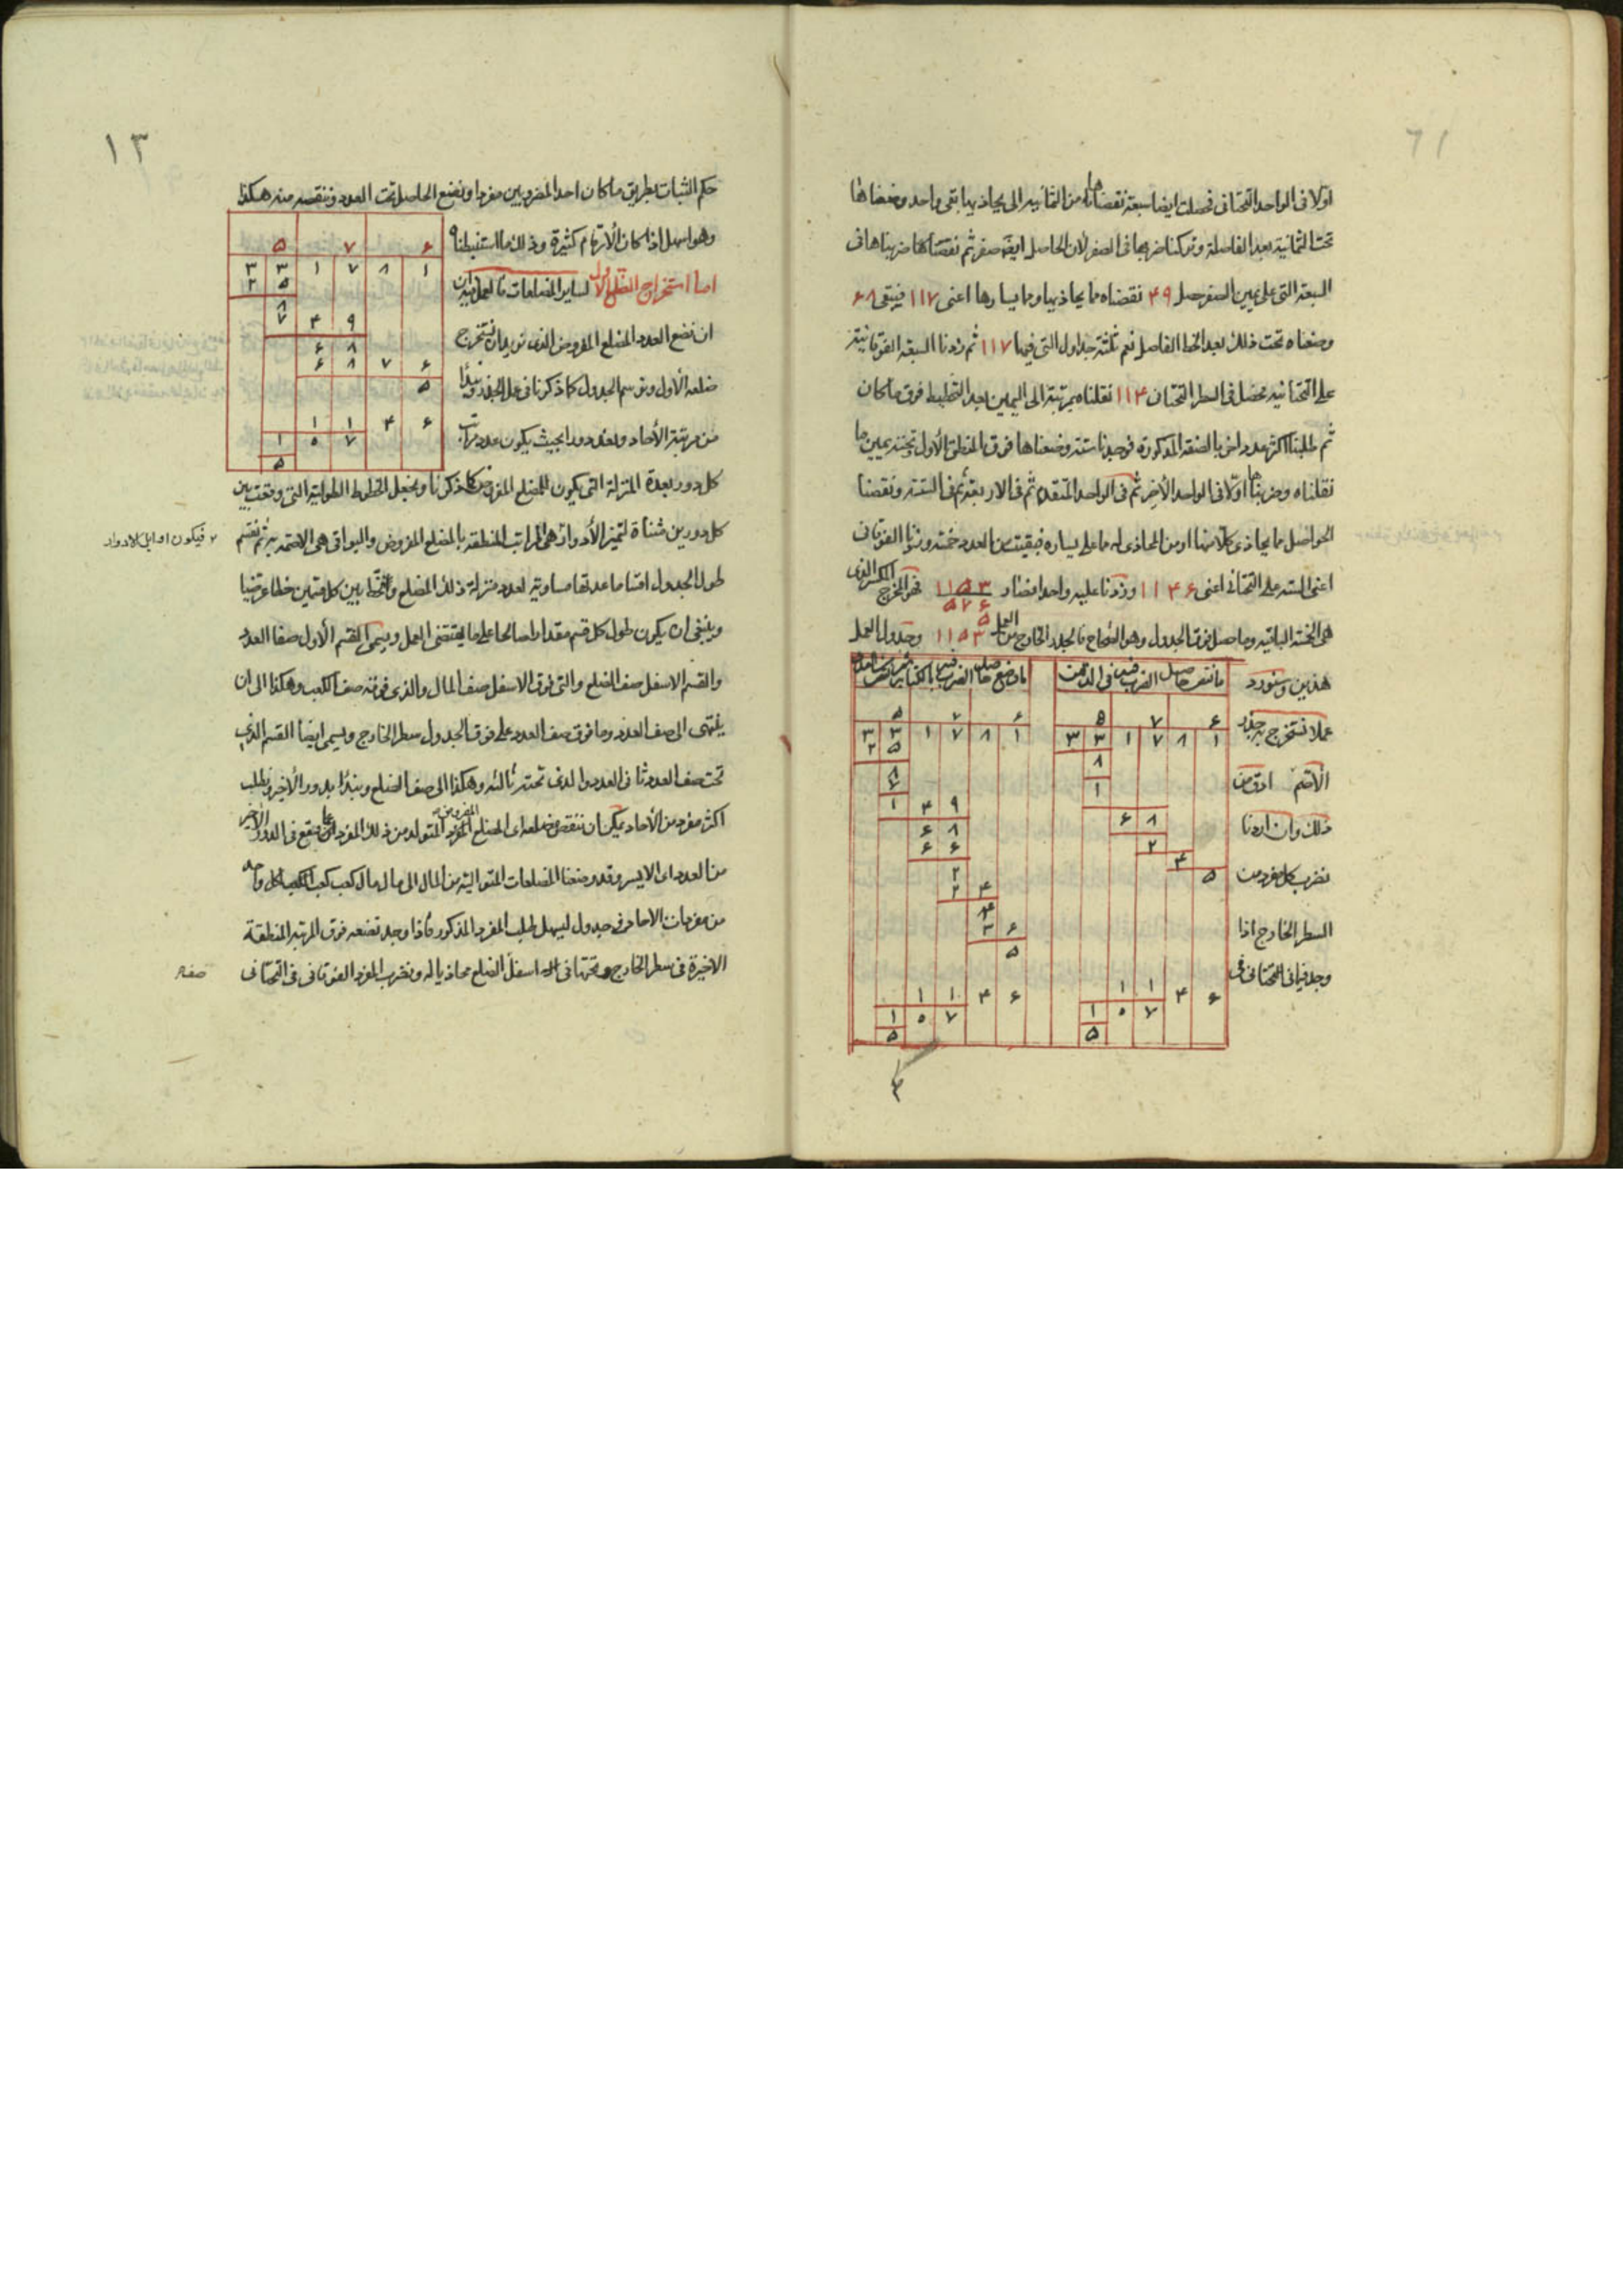 اولا فى الواحد التحتانى فحصلت ايضا سبعة نقصناها من الثمانيه التى يحاذيها بقى واحد وضعناها
تحت الثمانية بعد الفاصلة وتركنا ضربها فى الصفر لان الحاصل ايضا صفر ثم نقصناها ضربناها فى
السبعة التى على يمين الصفر حصل ۴۹ نقصناه مما يحاذيها وما يسارها اعنى ۱۱۷ فيبقى ۶۸
وضعناه تحت ذلك بعد الخط الفاصل فى ثلثة جداول التى فيها ۱۱۷ ثم زدنا السبعة الفوقانية
على التحتانية فحصل فى السطر التحتانى ۱۱۴ نقلناه بمرتبة الى اليمين بعد التخطيط فوق ما كان
ثم طلبنا اكثر عدد اخر بالصفة المذكورة فوجدنا ستة وضعناها فوق المنطق الاول وتحته يمين ما
نقلناه وضربناها اولا فى الواحد الاخير ثم فى الواحد المتقدم ثم فى الاربعة ثم فى الستة ونقصنا
الحواصل مما يحاذى كلا منها او من المحاذى له ما على يساره فبقيت من العدد خمسة وزدنا الفوقانى
اعنى الستة على التحتانى اعنى ۱۱۴۶ وزدنا عليه واحدا فصار ۱۱۵۳ فهو المخرج الكسر الذى
هى الخمسة الباقية وما حصل فوق الجدول وهو الصحاح فالجذر الخارج من العمل ۵۷۶ ۵ ۱۱۵۳ وجدول العمل
هذين وسنورد
عملا نستخرج به جذر
الاصم ادق من
ذلك وان اردنا
نضرب كل مفرد من
السطر الخارج اذا
وجد فيما فى التحتانى فى
ما نقص حاصل الضرب فيه فى الذهن
ما وضع حاصل الضرب فيه بالكتابة
۵ ۷ ۶
۳ ۳ ۱ ۷ ۸ ۱
۸
۱
۶ ۸
۲
۴
۵
۱ ۱ ۴ ۶
۱ ۵ ۷
۵
۵ ۷ ۶
۳ ۳ ۱ ۷ ۸ ۱
۲ ۵
۸
۷
۱ ۴ ۹
۶ ۸
۶ ۶
۲
۲ ۴
۴
۳ ۶
۵
۱ ۱ ۴ ۶
۱ ۵ ۷
۵
۳
۱۳
حكم الثبات بطريق ما كان احد المضروبين مفردا ونضع الحاصل تحت العدد وننقصه منه هكذا
وهو اسهل اذا كان الارقام كثيرة وذلك مما استنبطناه
اما استخراج الضلع الاول لساير المضلعات فالعمل فيه
ان نضع العدد المضلع المفروض الذى نريد ان نستخرج
ضلعه الاول ونرسم الجدول كما ذكرنا فى عمل الجذر ونبدأ
من مرتبة الآحاد ونعد دورا بحيث يكون عدد مراتب
۵ ۷ ۶
۳ ۳ ۱ ۷ ۸ ۱
۲ ۵
۸
۷ ۴ ۹
۶ ۸
۶ ۸ ۷ ۶
۵
۱ ۱ ۴ ۶
۱ ۵ ۷
۵
كل دور بعدة المنزلة التى يكون للمضلع المفروض كما ذكرنا ونجعل الخطوط الطولية التى وقعت بين
كل دورين مثناة لتميز الادوار هى المراتب المنطقة بالمضلع المفروض والبواقى هى الاصم به ثم نقسم
فيكون اوايل الادوار
طول الجدول اقساما عدتها مساوية لعدد منزلة ذلك المضلع ونخط بين كل قسمين خطا عرضيا
وينبغى ان يكون طول كل قسم مقدارا صالحا على ما يقتضى العمل ويسمى القسم الاول صف العدد
والقسم الاسفل صف الضلع والتى فوق الاسفل صف المال والذى فوقه صف الكعب وهكذا الى ان
ينتهى الى صف العدد وما فوق صف العدد على فوق الجدول سطر الخارج ويسمى ايضا القسم الذى
تحت صف العدد ثانى العدد والذى تحته ثالثه وهكذا الى صف الضلع ونبدأ بدور الاخير ونطلب
اكثر مفرد من الآحاد يمكن ان ننقص مضلعه اى المضلع المفروض المتولد من ذلك المفرد مما يقع فى الدور الاخير
من العدد اى الايسر وقد وضعنا المضلعات المتوالية من المال الى مال مال كعب كعب الكعب كل واحد
من مفردات الآحاد فى جدول ليسهل طلب المفرد المذكور فاذا وجد نضعه فوق المرتبة المنطقة
الاخيرة فى سطر الخارج وتحتانى اسفل الضلع محاذيا له ونضرب المفرد الفوقانى فى التحتانى
صف